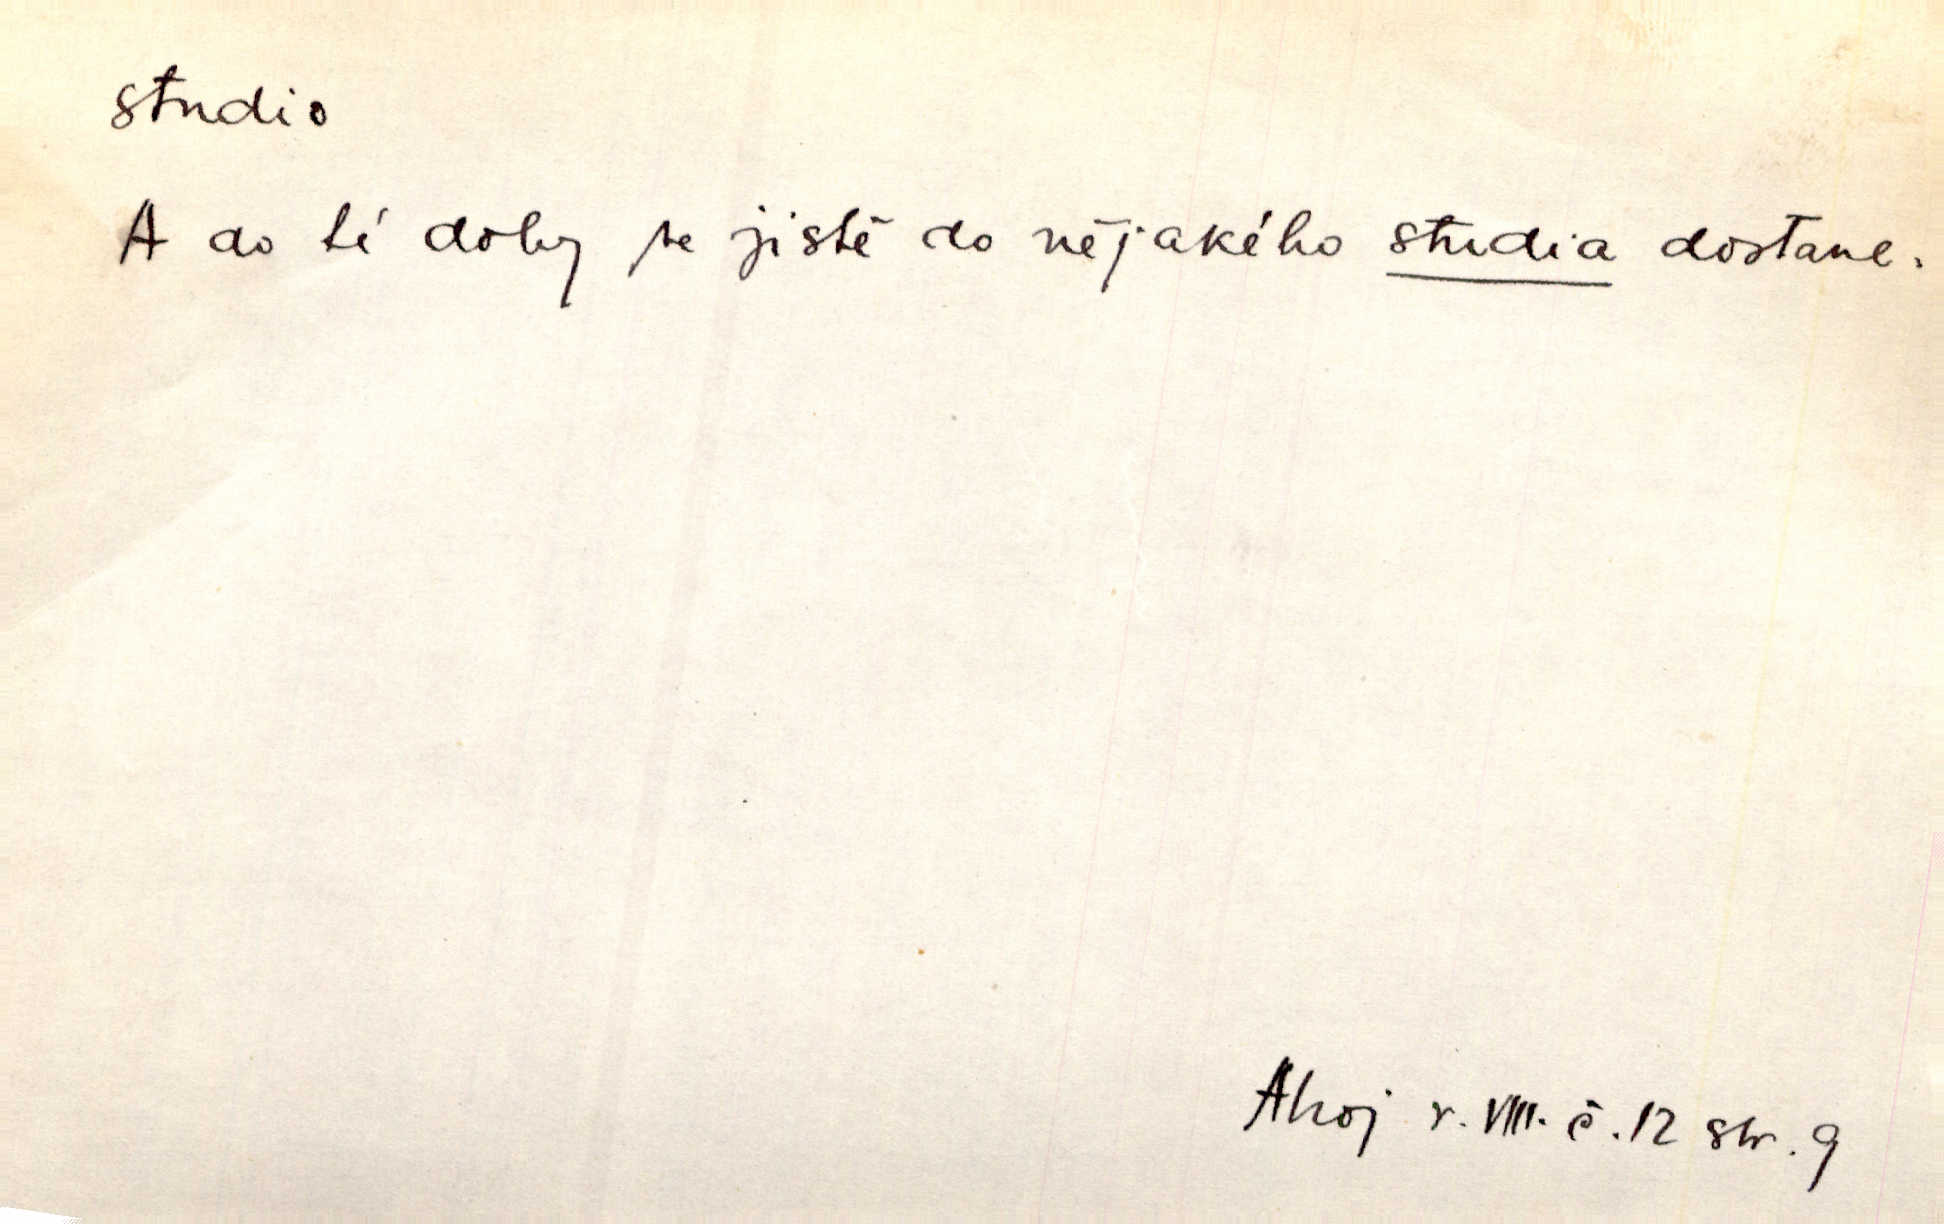 studio
A do té doby se jistě do nějakého studia dostane.
Ahoj r. VIII. č. 12 str. 9